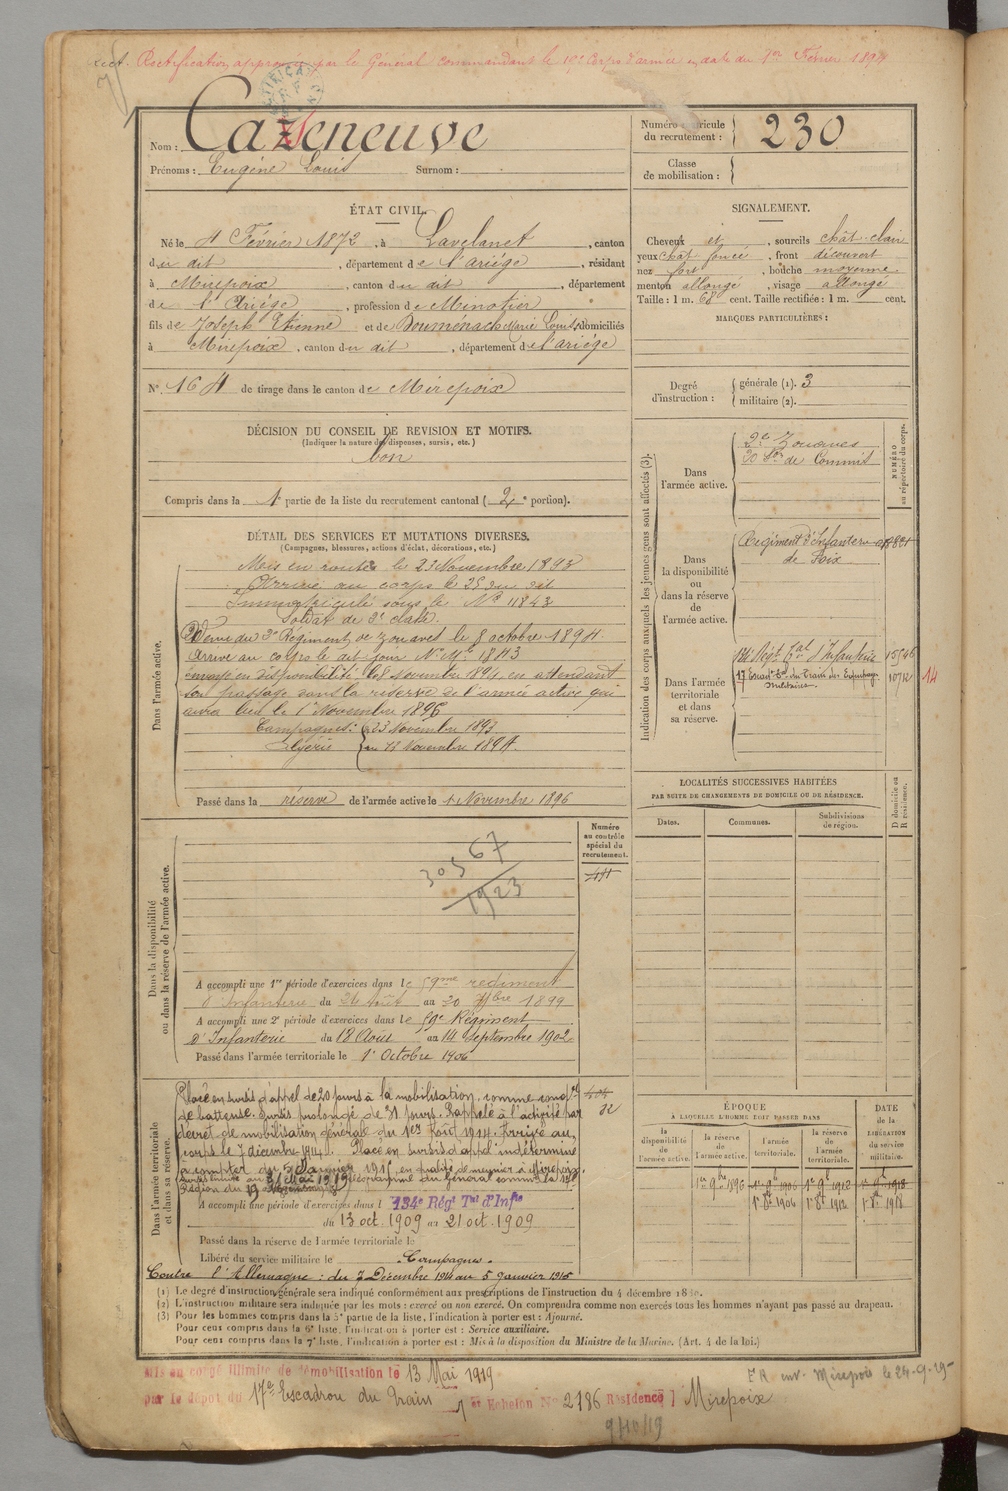 Rectification approuvée par le Général commandant le 17e Corps d'armée en date du 1er Février 1894
Nom : Cazeneuve
Prénoms : Eugène Louis Surnom :
Numéro matricule du recrutement : 230
Classe de mobilisation :
ÉTAT CIVIL.
Né le 4 Février 1872, à Lavelanet, canton
du dit, département de l'ariége, résidant
à Mirepoix, canton du dit, département
de l'Ariége, profession de Minotier
fils de Joseph Etienne et de Douménach Marie Louise, domiciliés
à Mirepoix, canton du dit, département de l'ariége
N° 164 de tirage dans le canton de Mirepoix
SIGNALEMENT.
Cheveux et, sourcils chât-clair
yeux chât foncé, front découvert
nez fort, bouche moyenne
menton allongé, visage allongé
Taille : 1 m. 68 cent. Taille rectifiée : 1 m. cent.
MARQUES PARTICULIÈRES :
Degré d'instruction : générale (1). 3
militaire (2).
DÉCISION DU CONSEIL DE REVISION ET MOTIFS.
(Indiquer la nature des dispenses, sursis, etc.)
bon
Compris dans la 1e partie de la liste du recrutement cantonal (2e portion).
DÉTAIL DES SERVICES ET MUTATIONS DIVERSES.
(Campagnes, blessures, actions d'éclat, décorations, etc.)
Dans l'armée active.
Mis en route le 23 Novembre 1893
Arrivé au corps le 25 du dit
Immatriculé sous le N° 11843
Soldat de 2e classe.
Venu du 2e Régiment de zouaves le 8 octobre 1894.
Arrivé au corps le dit jour N° Mle 1843
envoyé en disponibilité le 8 Novembre 1894 en attendant
son passage dans la réserve de l'armée active qui
aura lieu le 1er Novembre 1896
Campagnes : 23 Novembre 1893
Algérie au 11 Novembre 1894.
Passé dans la réserve de l'armée active le 1 Novembre 1896
Indication des corps auxquels les jeunes gens sont affectés (3).
NUMÉRO au répertoire du corps.
Dans l'armée active.
2e Zouaves
20 Son de Commis
Dans la disponibilité ou dans la réserve de l'armée active.
Régiment d'Infanterie
de Foix
Dans l'armée territoriale et dans sa réserve.
134 Régt tal d'Infanterie 15546
17 Escadon du Train des Equipages
Militaires 10712
14
LOCALITÉS SUCCESSIVES HABITÉES
PAR SUITE DE CHANGEMENTS DE DOMICILE OU DE RÉSIDENCE.
Dates. Communes. Subdivisions de région. D domicile ou R résidence.
Dans la disponibilité ou dans la réserve de l'armée active.
Numéro au contrôle spécial du recrutement.
30567
1923
A accompli une 1re période d'exercices dans le 59me régiment
d'Infanterie du 24 Août au 20 7bre 1899
A accompli une 2e période d'exercices dans le 59e Régiment
d'Infanterie du 18 Août au 14 septembre 1902
Passé dans l'armée territoriale le 1er Octobre 1906
Dans l'armée territoriale et dans sa réserve.
Placé en sursis d'appel de 20 jours à la mobilisation, comme
de batteuse. Sursis prolongé de 31 jours. Rappelé à l'activité par
décret de mobilisation générale du 1er Août 1914. Arrivé au
corps le 2 décembre 1914. Placé en sursis d'appel indéterminé
à compter du 5 Janvier 1915, en qualité de meunier à Mirepoix.
32
A accompli une période d'exercices dans l 134e Régt Tal d'Infie
du 13 oct. 1909 au 21 oct. 1909
Passé dans la réserve de l'armée territoriale le
Libéré du service militaire le
Campagnes.
Contre l'Allemagne : du 2 Décembre 1914 au 5 Janvier 1915
ÉPOQUE
À LAQUELLE L'HOMME DOIT PASSER DANS
DATE de la LIBÉRATION du service militaire.
la disponibilité de l'armée active. la réserve de l'armée active. l'armée territoriale. la réserve de l'armée territoriale.
1er 9bre 1896 1er 9b 1906 1er 9b 1912 1er 9b 1918
1er 8b 1906 1er 8bt 1912 1er 8bt 1918
(1) Le degré d'instruction générale sera indiqué conformément aux prescriptions de l'instruction du 4 décembre
(2) L'instruction militaire sera indiquée par les mots : exercé ou non exercé. On comprendra comme non exercés tous les hommes n'ayant pas passé au drapeau.
(3) Pour les hommes compris dans la 5e partie de la liste, l'indication à porter est : Ajourné.
Pour ceux compris dans la 6e liste, l'indication à porter est : Service auxiliaire.
Pour ceux compris dans la 7e liste, l'indication à porter est : Mis à la disposition du Ministre de la Marine. (Art. 4 de la loi.)
Mis en congé illimité de démobilisation le 13 Mai 1919
par le dépôt du 17e Escadron du Train 1er Echelon N° 2186 Résidence Mirepoix
Mirepoix le 24-9-19
9/10/19